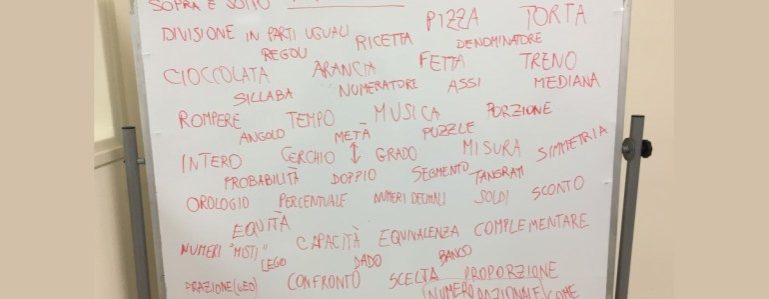 SOPRA E SOTTO
DIVISIONE IN PARTI UGUALI RICETTA PIZZA TORTA
REGOLI DENOMINATORE
CIOCCOLATA ARANCIA FETTA TRENO
SILLABA NUMERATORE ASSI MEDIANA
ROMPERE TEMPO MUSICA PORZIONE
ANGOLO METÀ PUZZLE
INTERO CERCHIO ↕ GRADO MISURA SIMMETRIA
PROBABILITÀ DOPPIO SEGMENTO TANGRAM
OROLOGIO PERCENTUALE NUMERI DECIMALI SOLDI SCONTO
EQUITÀ
NUMERI "MISTI" CAPACITÀ EQUIVALENZA COMPLEMENTARE
LEGO DADO BANCO
CONFRONTO SCELTA PROPORZIONE
NUMERO RAZIONALE COME